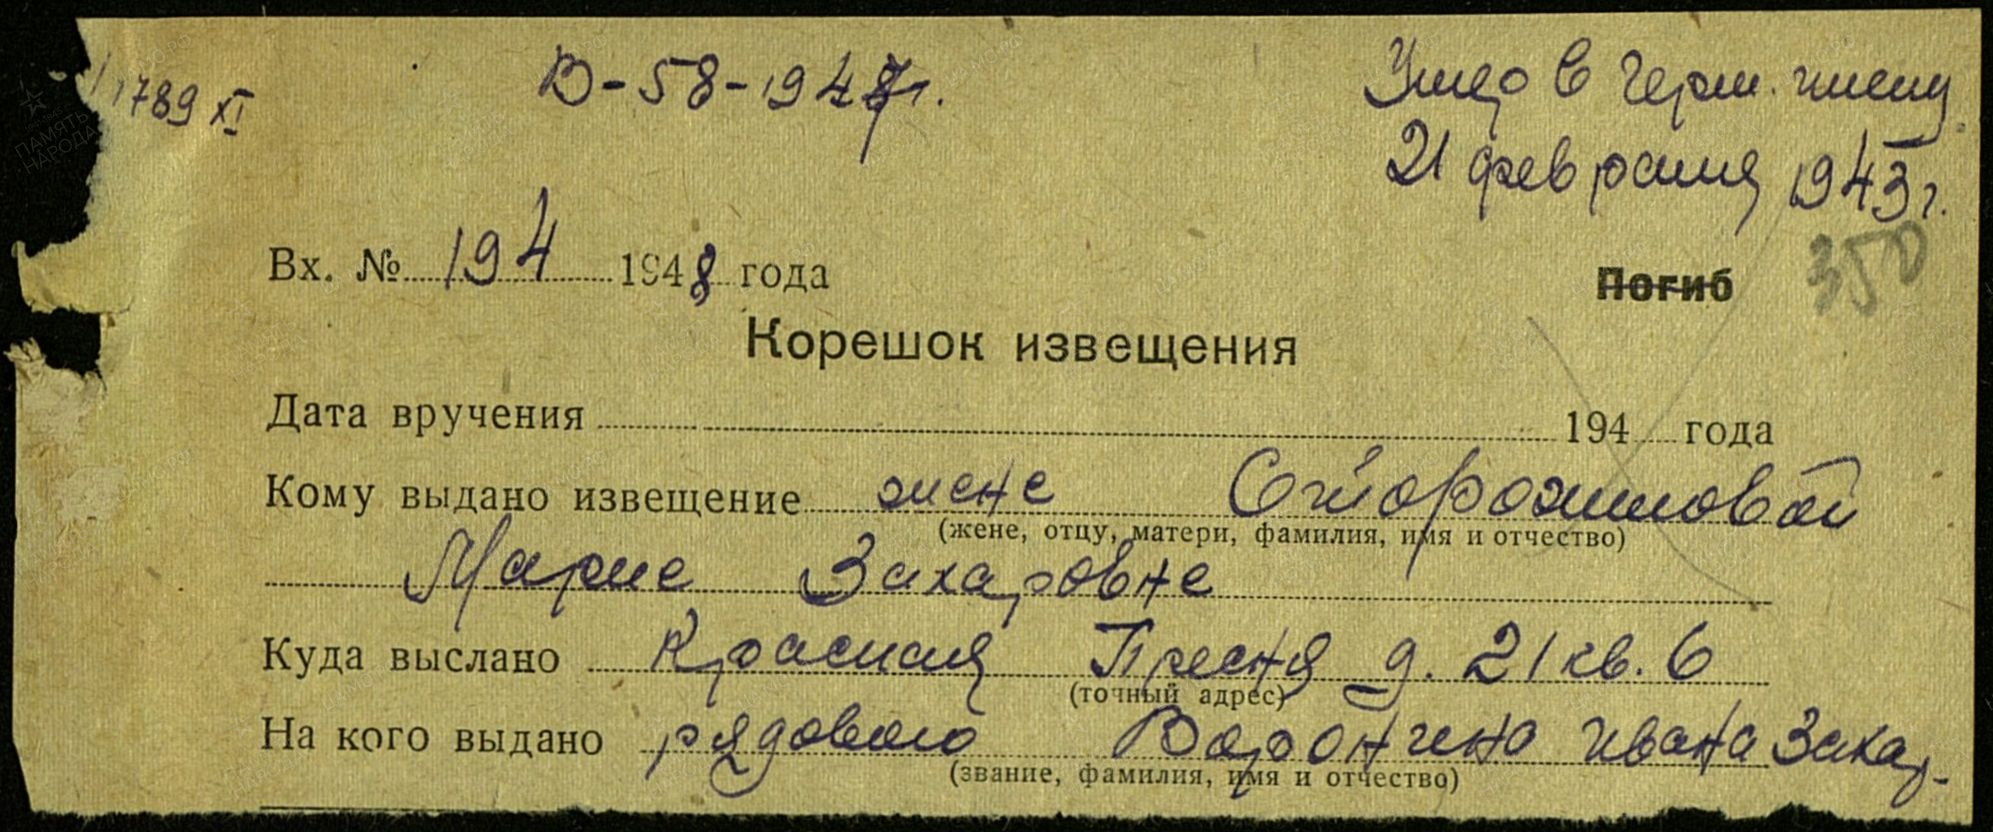 1789 XI
В-58-1947г.
Умер в герм. плену
21 февраля 1943 г.
350
Вх. № 194 1948 года
Погиб
Корешок извещения
Дата вручения 194 года
Кому выдано извещение жене Сторожиловой
(жене, отцу, матери, фамилия, имя и отчество)
Марие Захаровне
Куда выслано Красная Пресня д. 21 кв. 6
(точный адрес)
На кого выдано рядового Воронино Ивана Захар.
(звание, фамилия, имя и отчество)
ПАМЯТЬ
НАРОДА